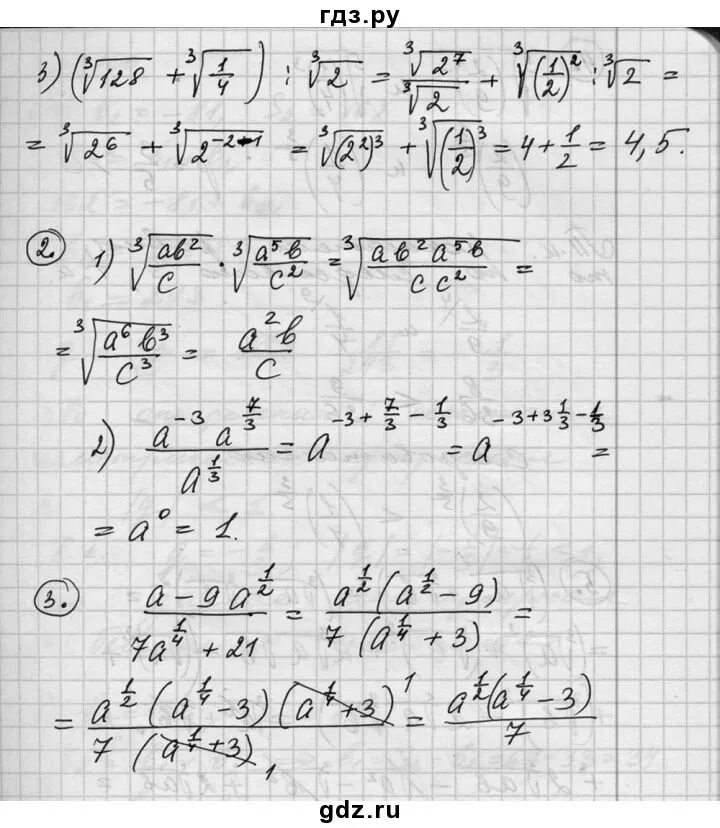 гдз.ру
3) (∛128 + ∛(1/4)) : ∛2 = ∛(2⁷)/∛2 + ∛((1/2)²) : ∛2 =
= ∛(2⁶) + ∛(2^(-2-1)) = ∛((2²)³) + ∛((1/2)³) = 4 + 1/2 = 4,5.
2. 1) ∛(ab²/c) · ∛(a⁵b/c²) = ∛(ab²a⁵b/(cc²)) =
= ∛(a⁶b³/c³) = a²b/c
2) (a^(-3) a^(7/3))/a^(1/3) = a^(-3 + 7/3 - 1/3) = a^(-3+3 1/3 - 1/3) =
= a⁰ = 1.
3. (a - 9a^(1/2))/(7a^(1/4) + 21) = (a^(1/2)(a^(1/2) - 9))/(7(a^(1/4) + 3)) =
= (a^(1/2)(a^(1/4) - 3)(a^(1/4) + 3) 1)/(7(a^(1/4) + 3) 1) = (a^(1/2)(a^(1/4) - 3))/7
gdz.ru